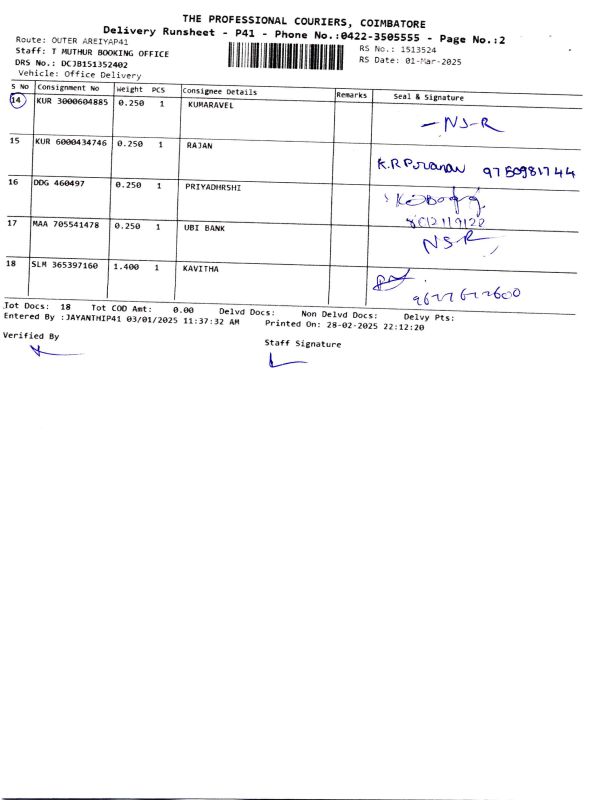 THE PROFESSIONAL COURIERS, COIMBATORE
Delivery Runsheet - P41 - Phone No.:0422-3505555 - Page No.:2
Route: OUTER AREIYAP41
RS No.: 1513524
Staff: T MUTHUR BOOKING OFFICE
RS Date: 01-Mar-2025
DRS No.: DCJB151352402
Vehicle: Office Delivery
S No Consignment No Weight PCS Consignee Details Remarks Seal & Signature
14 KUR 3000604885 0.250 1 KUMARAVEL
-NS-R
15 KUR 6000434746 0.250 1 RAJAN
K.R 9750981744
16 DDG 460497 0.250 1 PRIYADHRSHI
17 MAA 705541478 0.250 1 UBI BANK
NS-R
18 SLM 365397160 1.400 1 KAVITHA
Tot Docs: 18 Tot COD Amt: 0.00 Delvd Docs: Non Delvd Docs: Delvy Pts:
Entered By :JAYANTHIP41 03/01/2025 11:37:32 AM Printed On: 28-02-2025 22:12:20
Verified By
Staff Signature